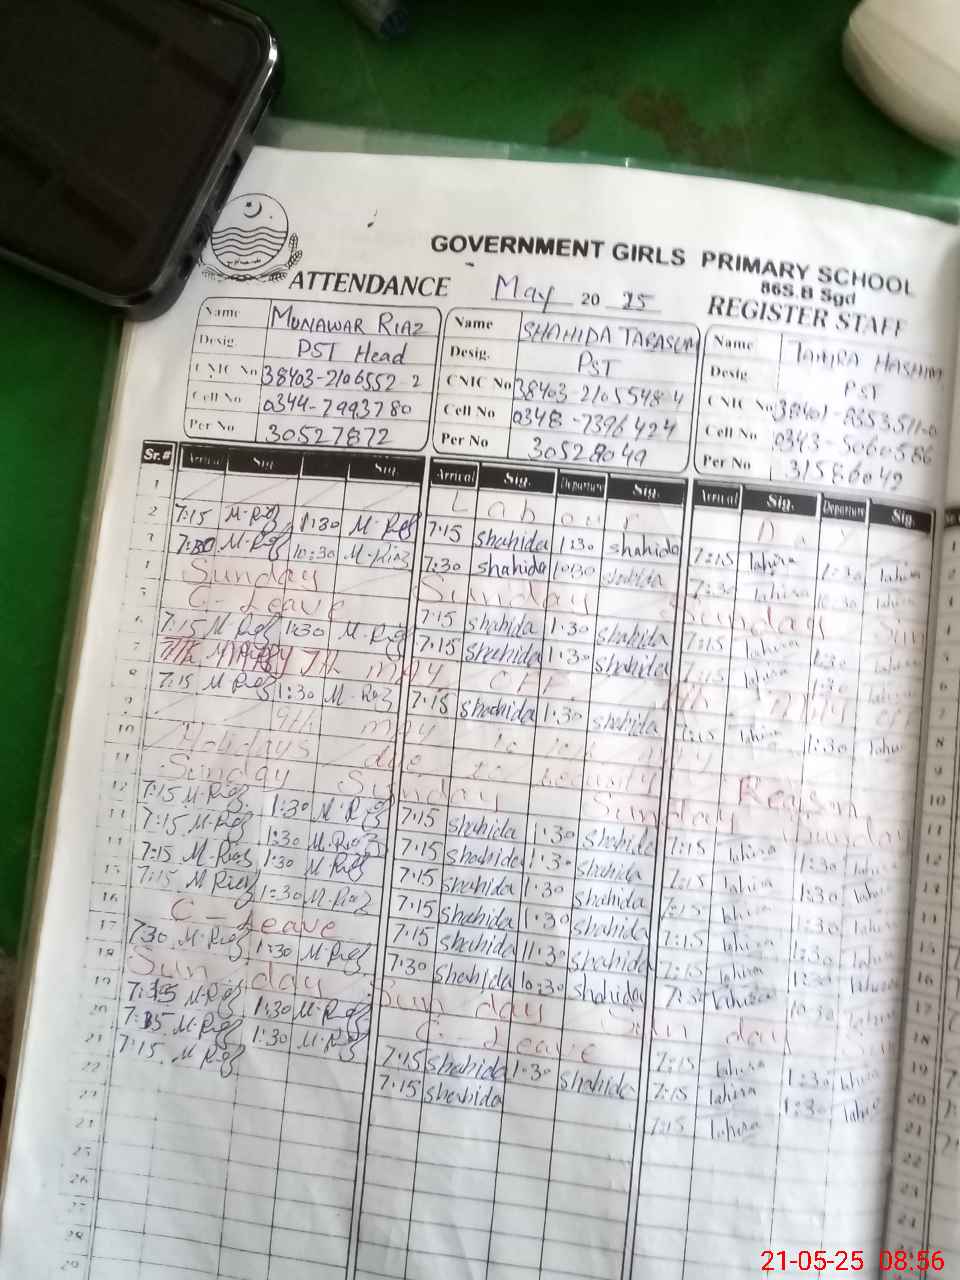 GOVERNMENT GIRLS PRIMARY SCHOOL
86S.B Sgd
ATTENDANCE May 20 25 REGISTER STAFF
Name MUNAWAR RIAZ Name SHAHIDA TABASUM Name TAHIRA HASHIM
Desig. PST Head Desig. PST Desig PST
CNIC No 38403-2106552-2 CNIC No 38403-2105548-4 CNIC No
Cell No 0344-7993780 Cell No 0348-7396424 Cell No 0343-5060586
Per No 30527872 Per No 30528049 Per No 31586049
Sr.# Arrival Sig. Sig. Arrival Sig. Departure Sig. Arrival Sig. Departure Sig.
1 Labour Day
2 7:15 M.Riaz 1:30 M.Riaz 7:15 shahida 1:30 shahida 7:15 Tahira 1:30 Tahira
3 7:30 M.Riaz 10:30 M.Riaz 7:30 shahida 10:30 shahida 7:30 Tahira 10:30 Tahira
4 Sunday Sunday Sunday Sun
5 C-Leave 7:15 shahida 1:30 shahida 7:15 Tahira 1:30 Tahira
6 7:15 M.Riaz 1:30 M.Riaz 7:15 shahida 1:30 shahida 7:15 Tahira 1:30 Tahira
7 7th may off 7th may off
8 7:15 M.Riaz 1:30 M.Riaz 7:15 shahida 1:30 shahida 7:15 Tahira 1:30 Tahira
9 9th may to
10 Holidays due to security Reason
11 Sunday Sunday Sunday Sunday
12 7:15 M.Riaz 1:30 M.Riaz 7:15 shahida 1:30 shahida 7:15 Tahira 1:30 Tahira
13 7:15 M.Riaz 1:30 M.Riaz 7:15 shahida 1:30 shahida 7:15 Tahira 1:30 Tahira
14 7:15 M.Riaz 1:30 M.Riaz 7:15 shahida 1:30 shahida 7:15 Tahira 1:30 Tahira
15 7:15 M.Riaz 1:30 M.Riaz 7:15 shahida 1:30 shahida 7:15 Tahira 1:30 Tahira
16 C-Leave 7:15 shahida 1:30 shahida 7:15 Tahira 1:30 Tahira
17 7:30 M.Riaz 1:30 M.Riaz 7:30 shahida 10:30 shahida 7:30 Tahira 10:30 Tahira
18 Sunday Sunday Sunday Sun
19 M.Riaz 1:30 M.Riaz C-Leave 7:15 Tahira 1:30 Tahira
20 M.Riaz 1:30 M.Riaz 7:15 shahida 1:30 shahida 7:15 Tahira 1:30 Tahira
21 7:15 M.Riaz 7:15 shahida 7:15 Tahira
22
23
24
25
26
27
28
29
21-05-25 08:56